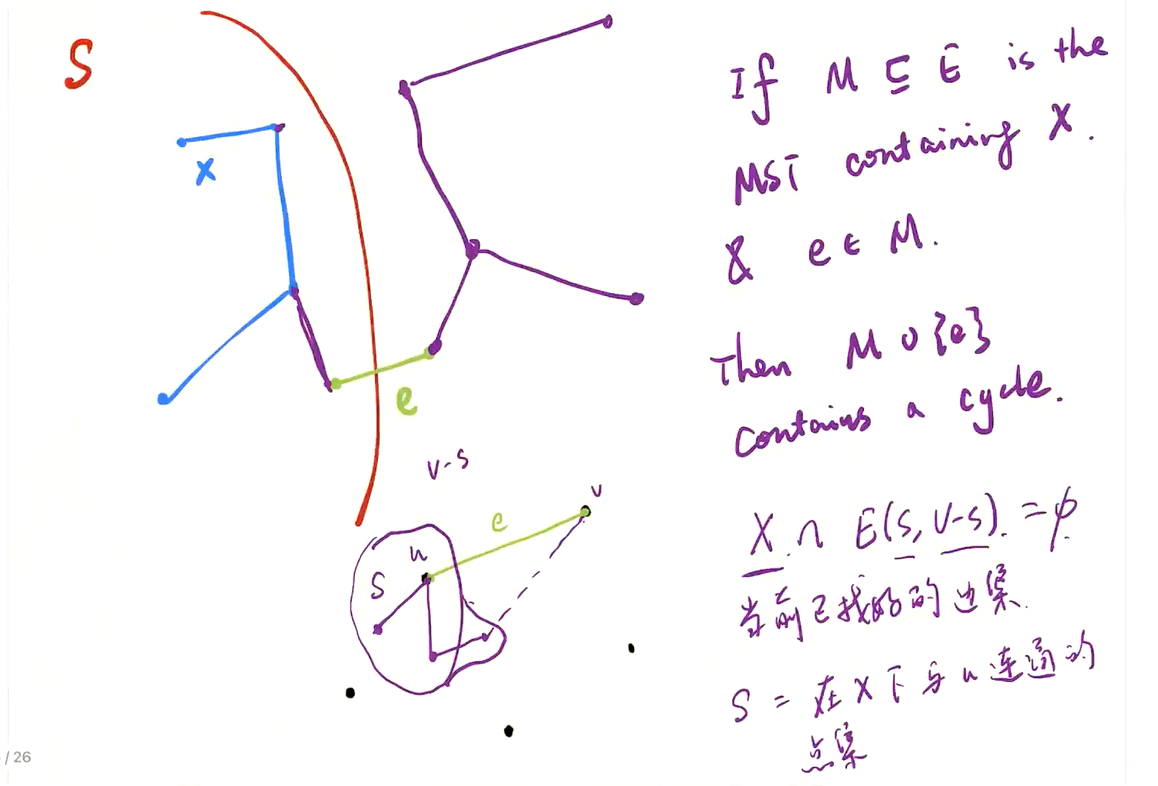 S
X
e
V-S
v
e
u
S
If M ⊆ E is the
MST containing X.
& e ∈ M.
Then M ∪ {e}
contains a cycle.
X ∩ E(S, V-S) = ϕ
当前已找好的边集
S = 在 X 下与 u 连通的
点集
/ 26